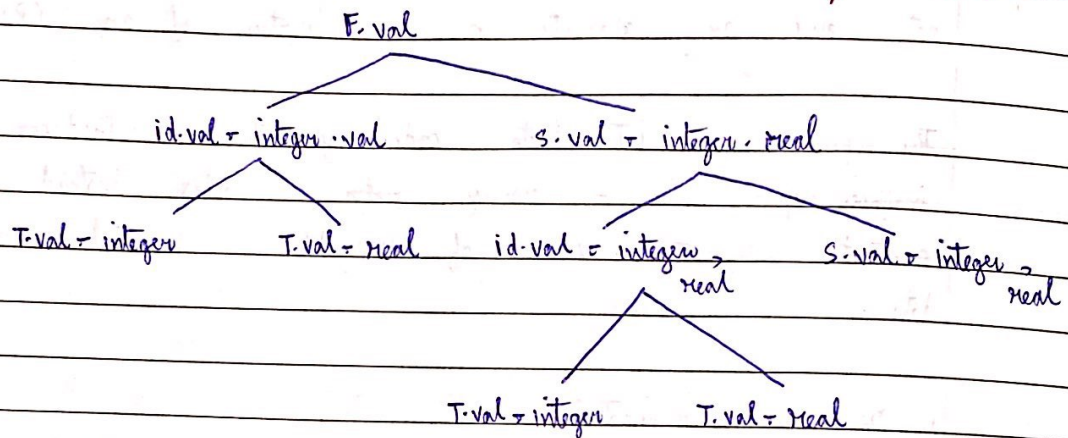 F.val
id.val = integer.val s.val = integer.real
T.val = integer T.val = real id.val = integer, S.val = integer,
real real
T.val = integer T.val = real